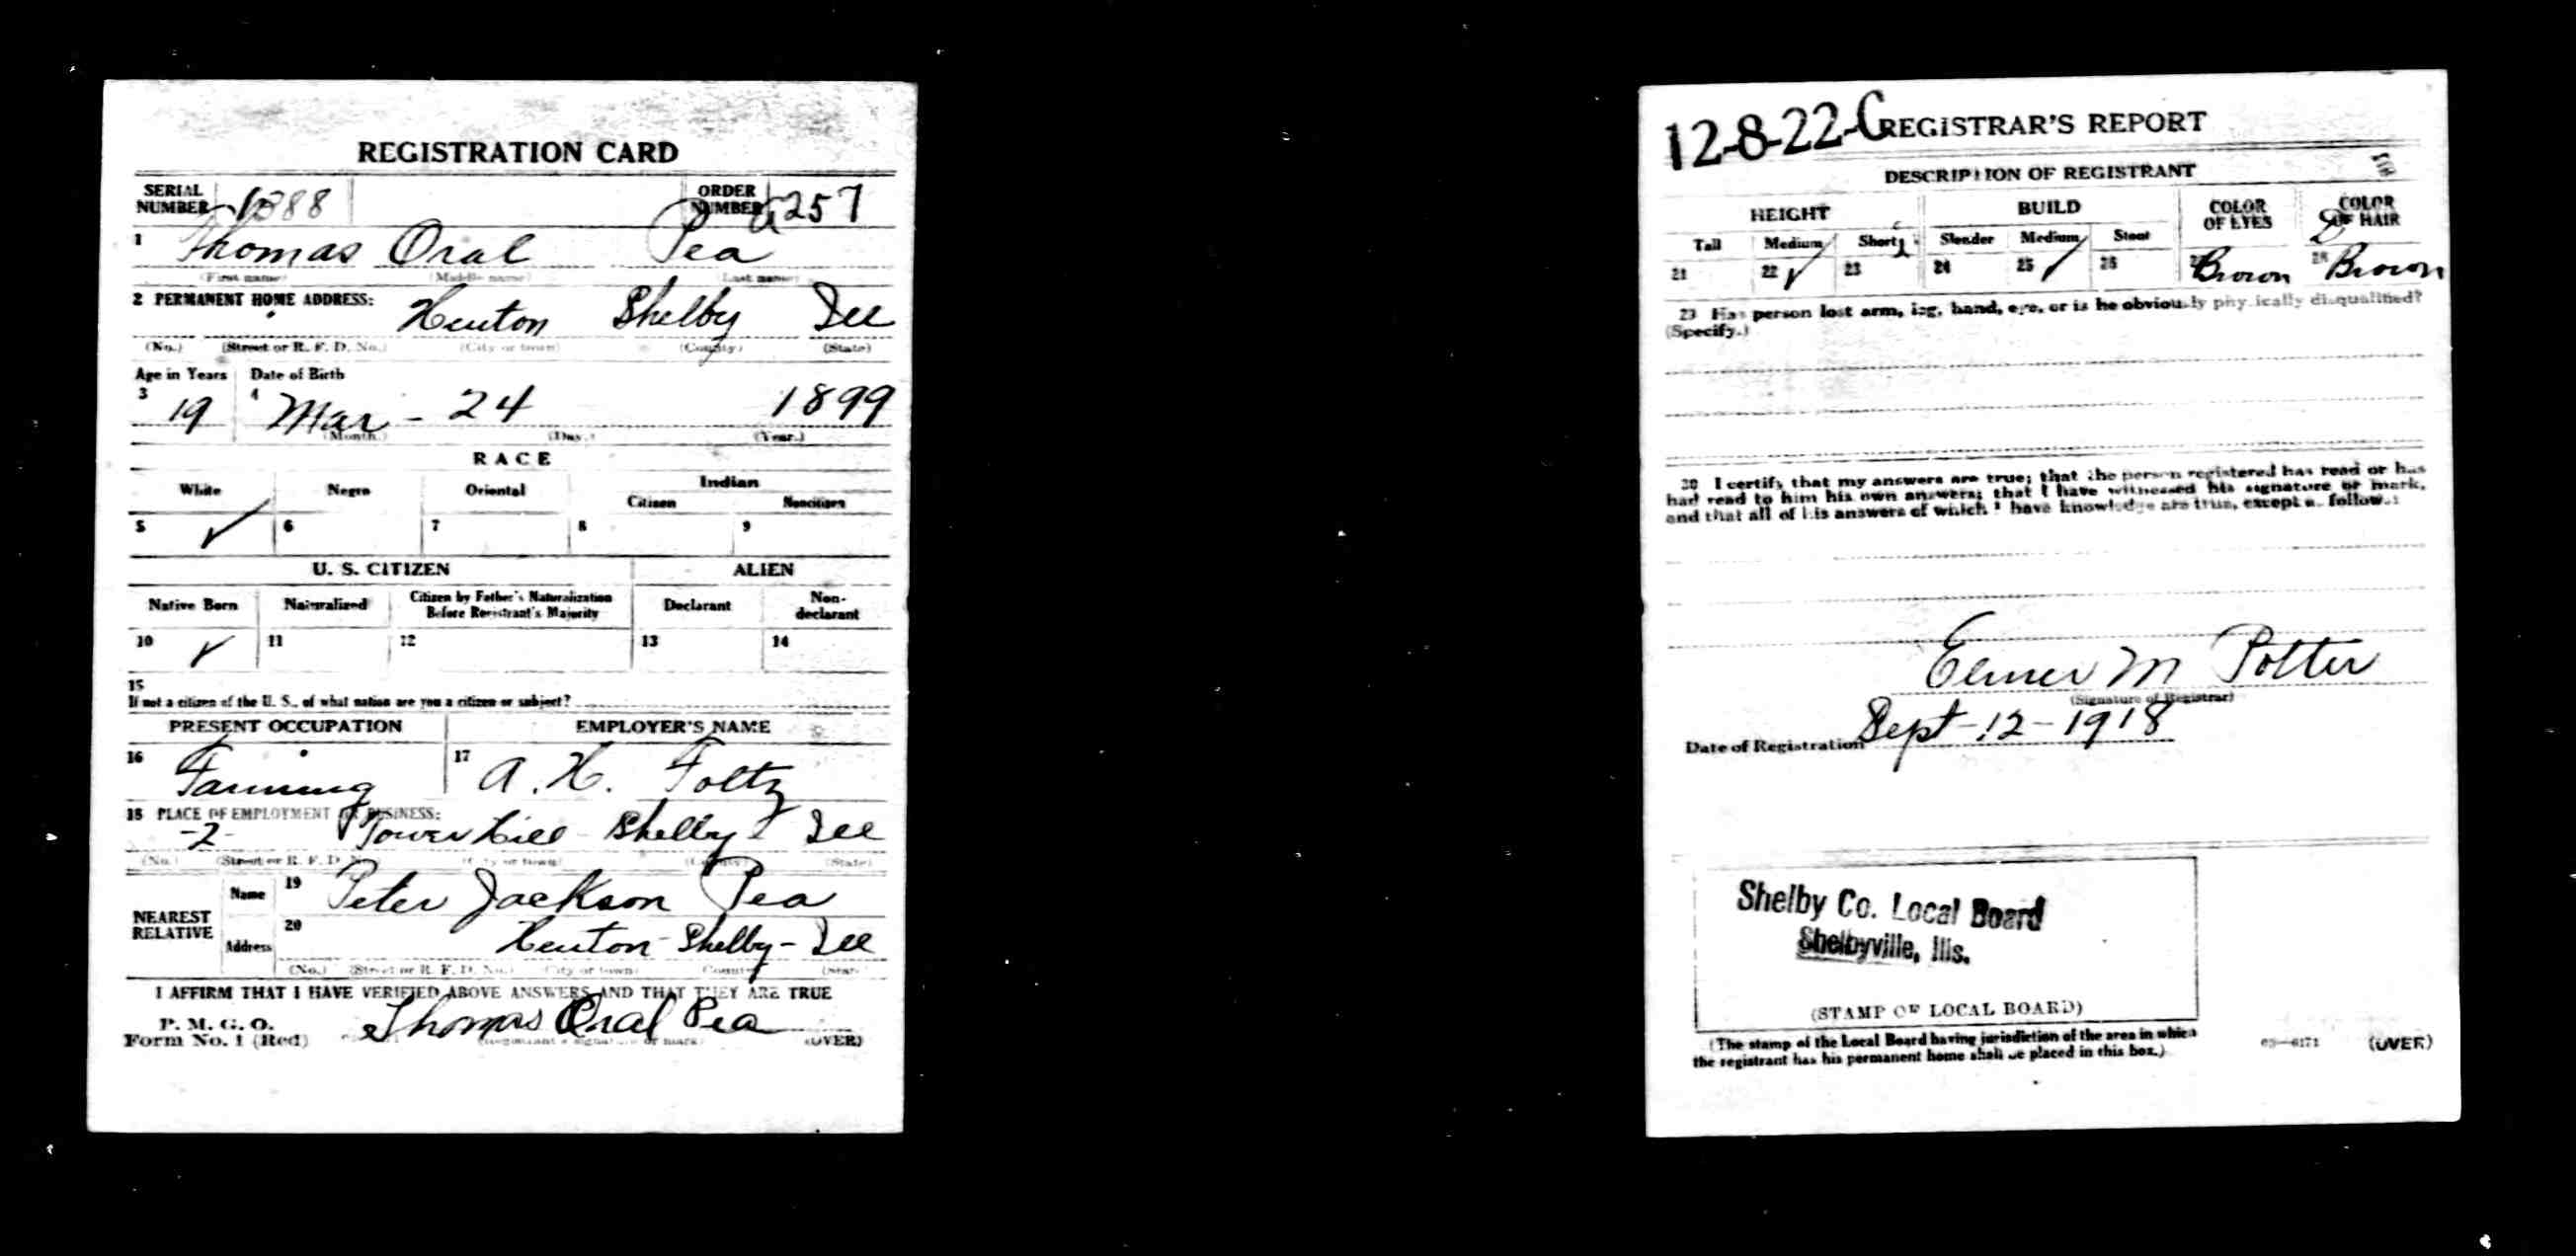 REGISTRATION CARD
SERIAL NUMBER 1388 ORDER NUMBER 257
1 Thomas Oral Pea
(First name) (Middle name) (Last name)
2 PERMANENT HOME ADDRESS:
Henton Shelby Ill
(No.) (Street or R. F. D. No.) (City or town) (County) (State)
Age in Years Date of Birth
3 19 4 Mar - 24 1899
(Month.) (Day.) (Year.)
RACE
White Negro Oriental Indian
Citizen Noncitizen
5 ✓ 6 7 8 9
U. S. CITIZEN ALIEN
Native Born Naturalized Citizen by Father's Naturalization Before Registrant's Majority Declarant Non-declarant
10 ✓ 11 12 13 14
15
If not a citizen of the U. S., of what nation are you a citizen or subject?
PRESENT OCCUPATION EMPLOYER'S NAME
16 Farming 17 A. H. Foltz
18 PLACE OF EMPLOYMENT OR BUSINESS:
-2- Tower Hill Shelby Ill
(No.) (Street or R. F. D. No.) (City or town) (County) (State)
NEAREST RELATIVE
Name 19 Peter Jackson Pea
Address 20 Henton - Shelby - Ill
(No.) (Street or R. F. D. No.) (City or town) (County) (State)
I AFFIRM THAT I HAVE VERIFIED ABOVE ANSWERS AND THAT THEY ARE TRUE
P. M. G. O.
Form No. 1 (Red) Thomas Oral Pea
(Registrant's signature or mark) (OVER)
12-8-22-C REGISTRAR'S REPORT
DESCRIPTION OF REGISTRANT
HEIGHT BUILD COLOR OF EYES COLOR OF HAIR
Tall Medium Short Slender Medium Stout
21 22 ✓ 23 24 25 ✓ 26 27 Brown 28 Brown
29 Has person lost arm, leg, hand, eye, or is he obviously physically disqualified?
(Specify.)
30 I certify that my answers are true; that the person registered has read or has
had read to him his own answers; that I have witnessed his signature or mark,
and that all of his answers of which I have knowledge are true, except as follows:
Elmer M Potter
(Signature of Registrar)
Date of Registration Sept-12-1918
Shelby Co. Local Board
Shelbyville, Ills.
(STAMP OF LOCAL BOARD)
(The stamp of the Local Board having jurisdiction of the area in which
the registrant has his permanent home shall be placed in this box.)
03—6171 (OVER)